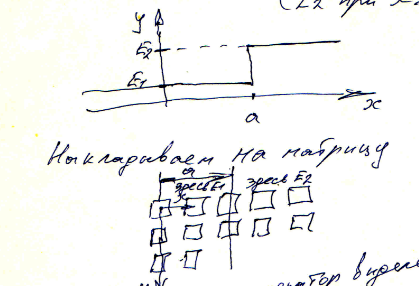 (E2 при x
y
E2
E1
a
x
Накладываем на матрицу
a
здесь E1 здесь E2
x